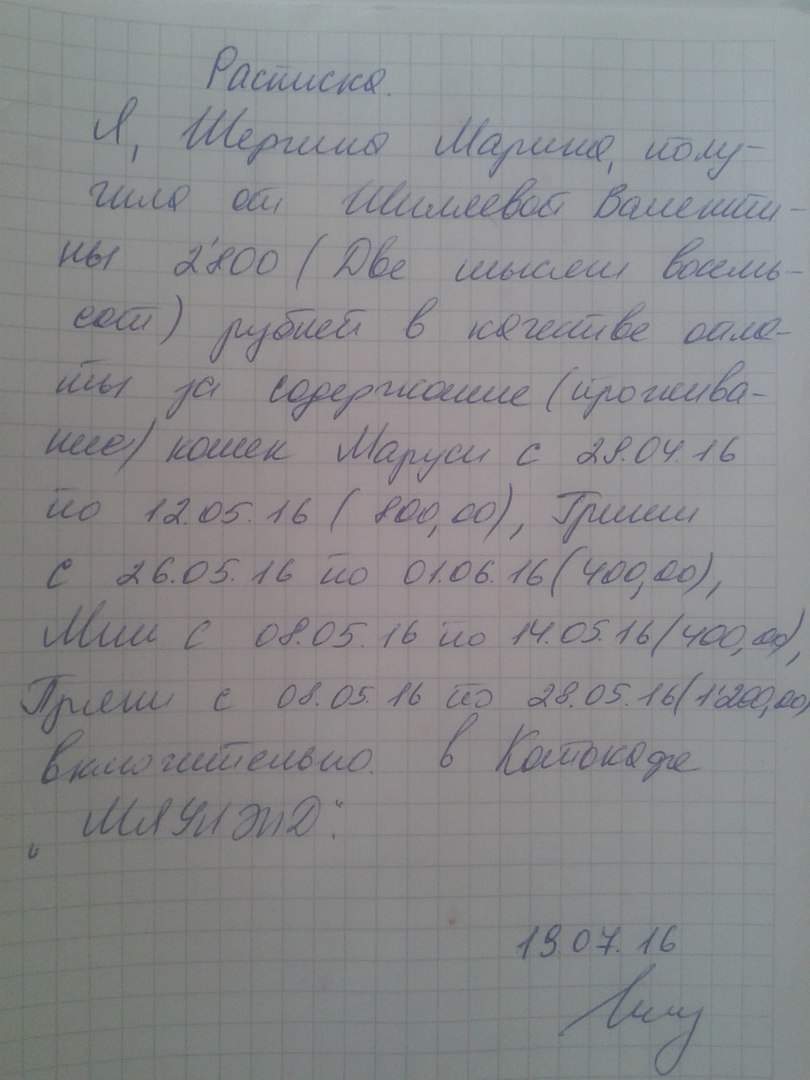 Расписка.
Я, Шергина Марина, полу-
чила от Шиляевой Валенти-
ны 2'800 (Две тысячи восемь-
сот) рублей в качестве опла-
ты за содержание (прожива-
ние) кошек Маруси с 29.04.16
по 12.05.16 (800,00), Гриши
с 26.05.16 по 01.06.16 (400,00),
Мии с 08.05.16 по 14.05.16 (400,00),
Пряни с 08.05.16 по 28.05.16 (1'200,00)
включительно. в Котокафе
"МЯУЛЭНД".
19.07.16